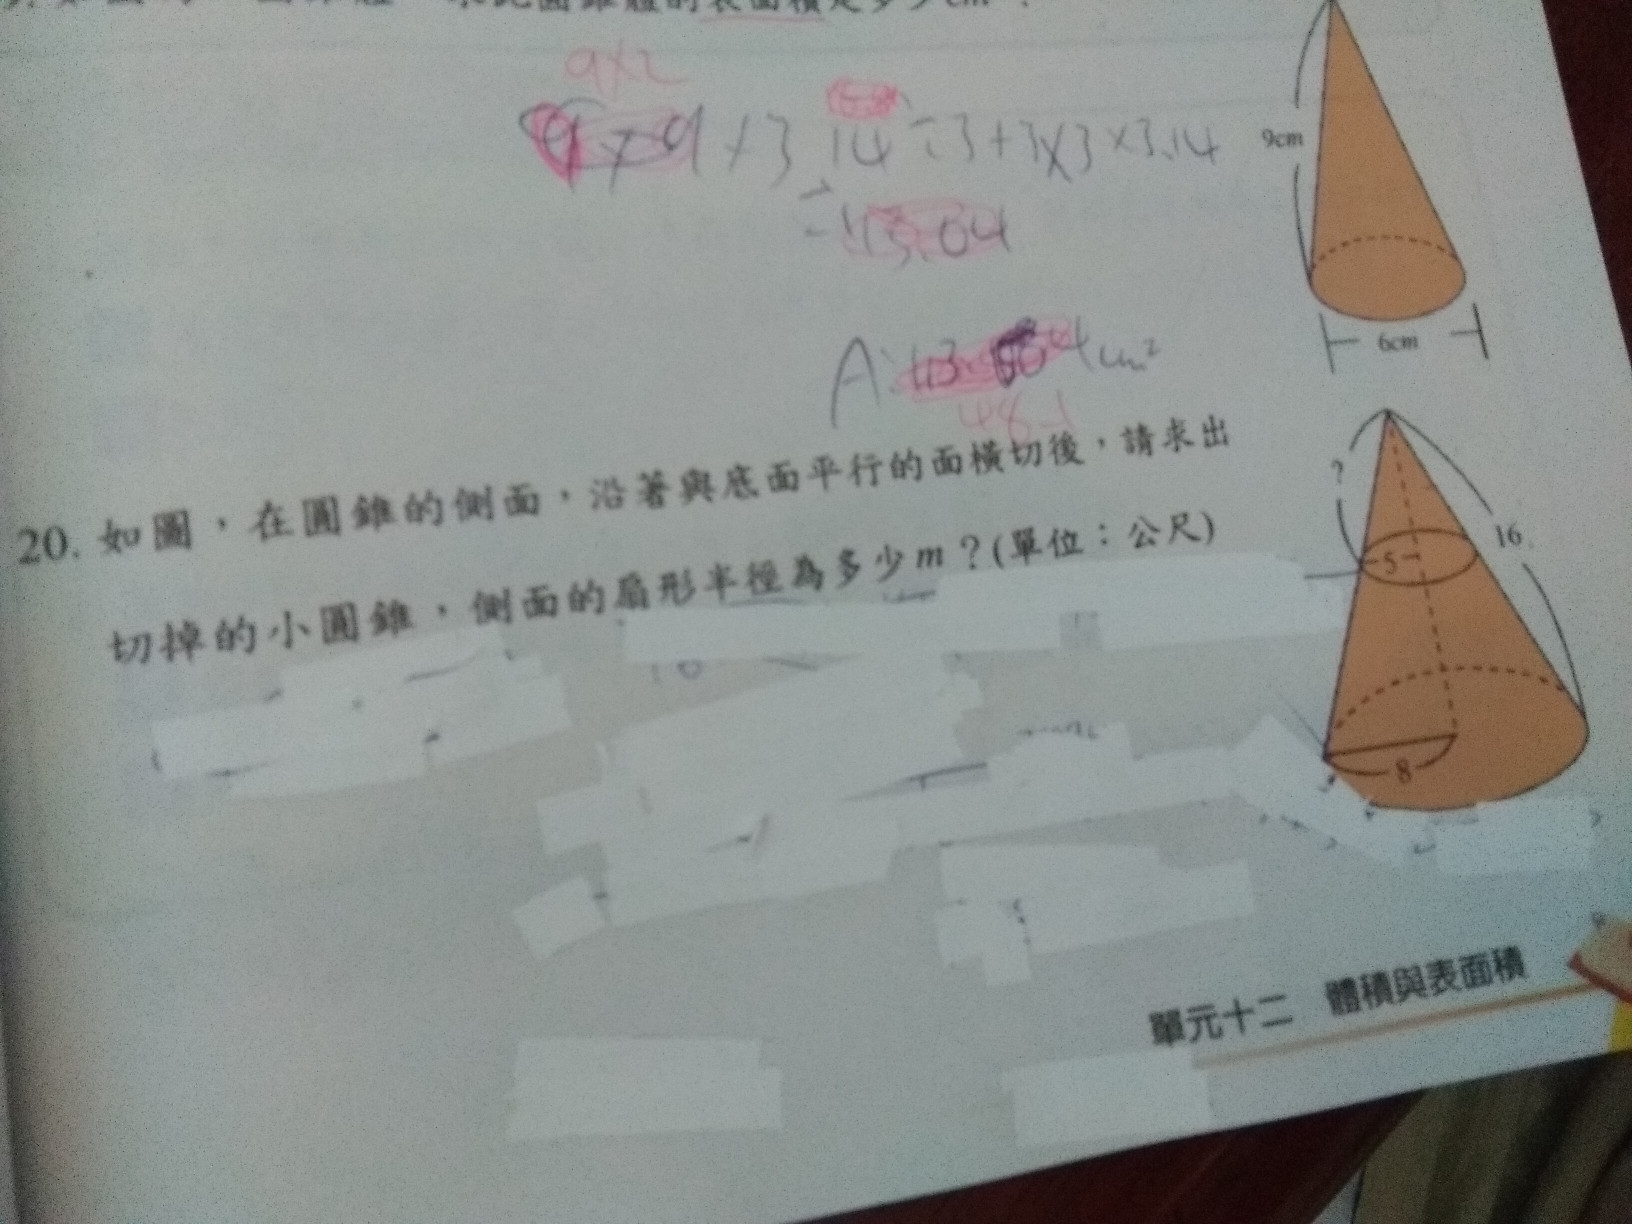 圓錐體的表面積是多少cm²？
9×2
9×9×3.14÷3+3×3×3.14
=113.04
9cm
A:113.04cm²
48.1
6cm
20. 如圖，在圓錐的側面，沿著與底面平行的面橫切後，請求出
切掉的小圓錐，側面的扇形半徑為多少m？(單位：公尺)
?
16
5
8
單元十二 體積與表面積